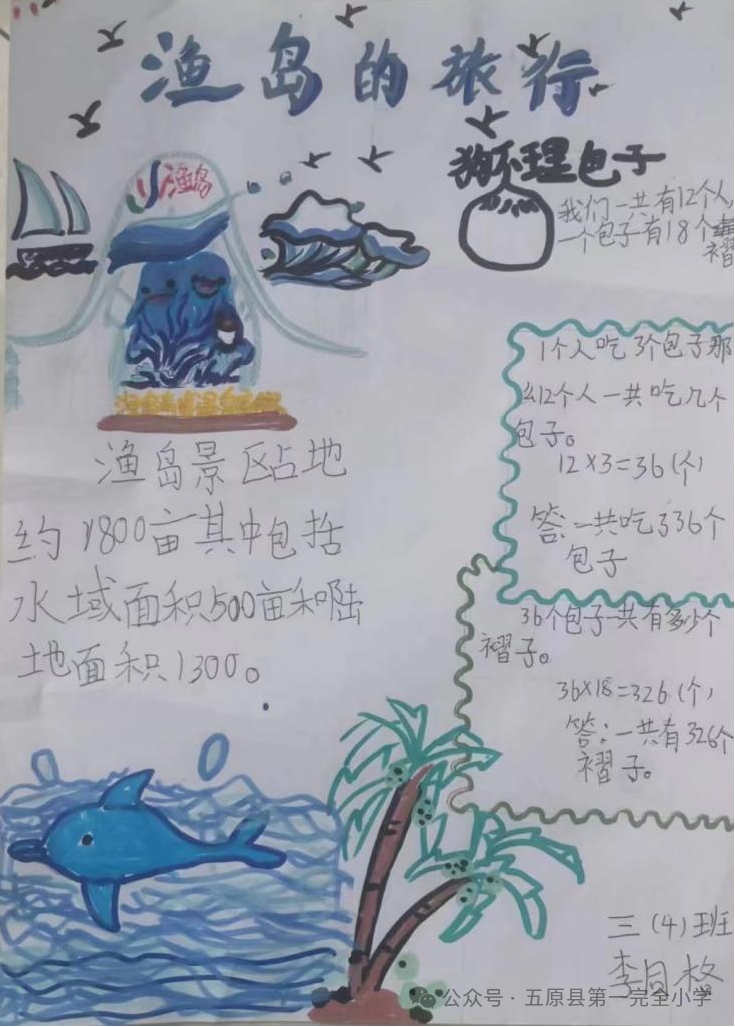 渔岛的旅行
渔岛
狗不理包子
我们一共有12个人,
一个包子有18个
褶
渔岛景区占地
约1800亩其中包括
水域面积500亩和陆
地面积1300。
1个人吃3个包子那
么12个人一共吃几个
包子。
12×3=36(个)
答:一共吃了36个
包子
36个包子一共有多少个
褶子。
36×18=326(个)
答:一共有326个
褶子。
三(4)班
公众号·五原县第一完全小学